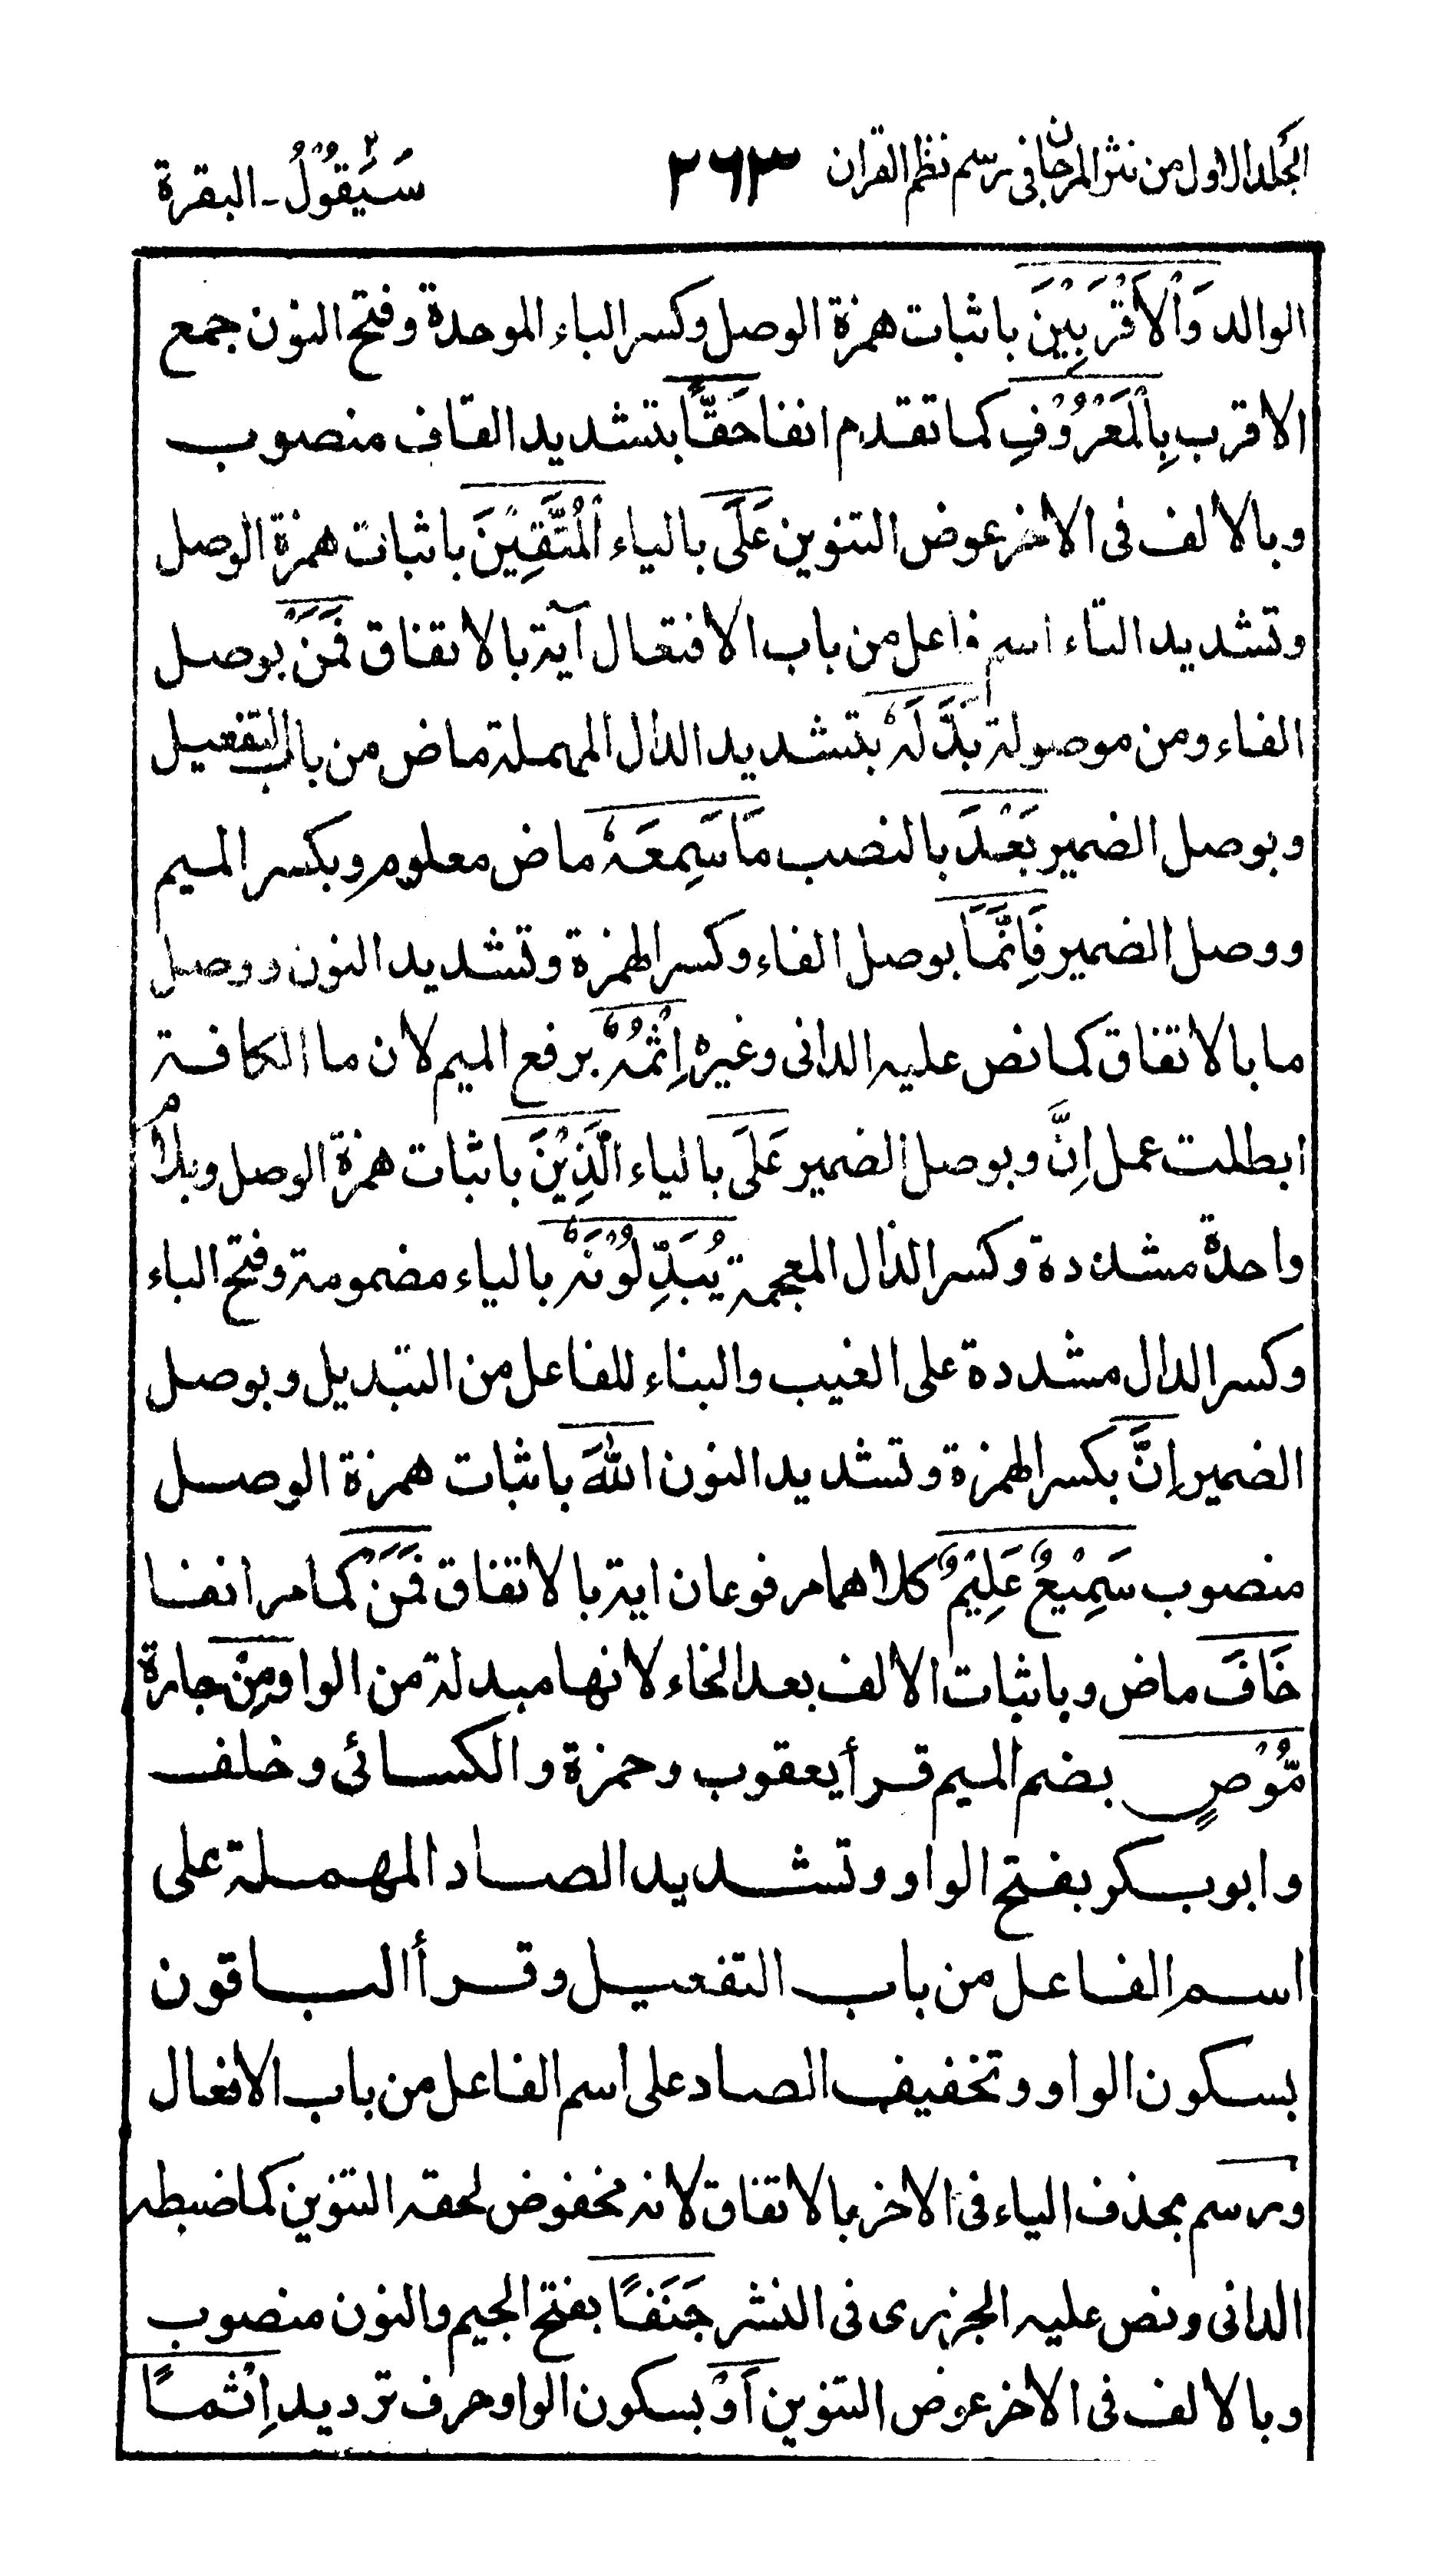 الجلد الاول من نثر المرجان فى رسم نظم القران ٢٦٣ سَيَقُوْلُ ٢ ـ البقرة
الوالد وَالْاَقْرَبِيْنَ باثبات همزة الوصل وكسر الباء الموحدة وفتح النون جمع
الاقرب بِالْمَعْرُوْفِ كما تقدم انفا حَقًّا بتشديد القاف منصوب
وبالالف فى الاخر عوض التنوين عَلَى بالياء الْمُتَّقِيْنَ باثبات همزة الوصل
وتشديد التاء اسم فاعل من باب الافتعال آية بالاتفاق فَمَنْ بوصل
الفاء ومن موصولة بَدَّلَهٗ بتشديد الدال المهملة ماض من باب التفعيل
وبوصل الضمير بَعْدَ بالنصب مَا سَمِعَهٗ ماض معلوم وبكسر الميم
ووصل الضمير فَاِنَّمَا بوصل الفاء وكسر الهمزة وتشديد النون ووصل
ما بالاتفاق كما نص عليه الدانى وغيره اِثْمُهٗ برفع الميم لان ما الكافة
ابطلت عمل اِنَّ وبوصل الضمير عَلَى بالياء الَّذِيْنَ باثبات همزة الوصل وبلام
واحدة مشددة وكسر الذال المعجمة يُبَدِّلُوْنَهٗ بالياء مضمومة وفتح الباء
وكسر الدال مشددة على الغيب والبناء للفاعل من التبديل وبوصل
الضمير اِنَّ بكسر الهمزة وتشديد النون اللّٰهَ باثبات همزة الوصل
منصوب سَمِيْعٌ عَلِيْمٌ كلاهما مرفوعان اية بالاتفاق فَمَنْ كما مر انفا
خَافَ ماض وباثبات الالف بعد الخاء لانها مبدلة من الواو مِنْ جارة
مُّوْصٍ بضم الميم قرأ يعقوب وحمزة والكسائى وخلف
وابوبكر بفتح الواو وتشديد الصاد المهملة على
اسم الفاعل من باب التفعيل وقرأ الباقون
بسكون الواو وتخفيف الصاد على اسم الفاعل من باب الافعال
ورسم بحذف الياء فى الاخر بالاتفاق لانه مخفوض لحقه التنوين كما ضبطه
الدانى ونص عليه الجزرى فى النشر جَنَفًا بفتح الجيم والنون منصوب
وبالالف فى الاخر عوض التنوين اَوْ بسكون الواو حرف ترديد اِثْمًا